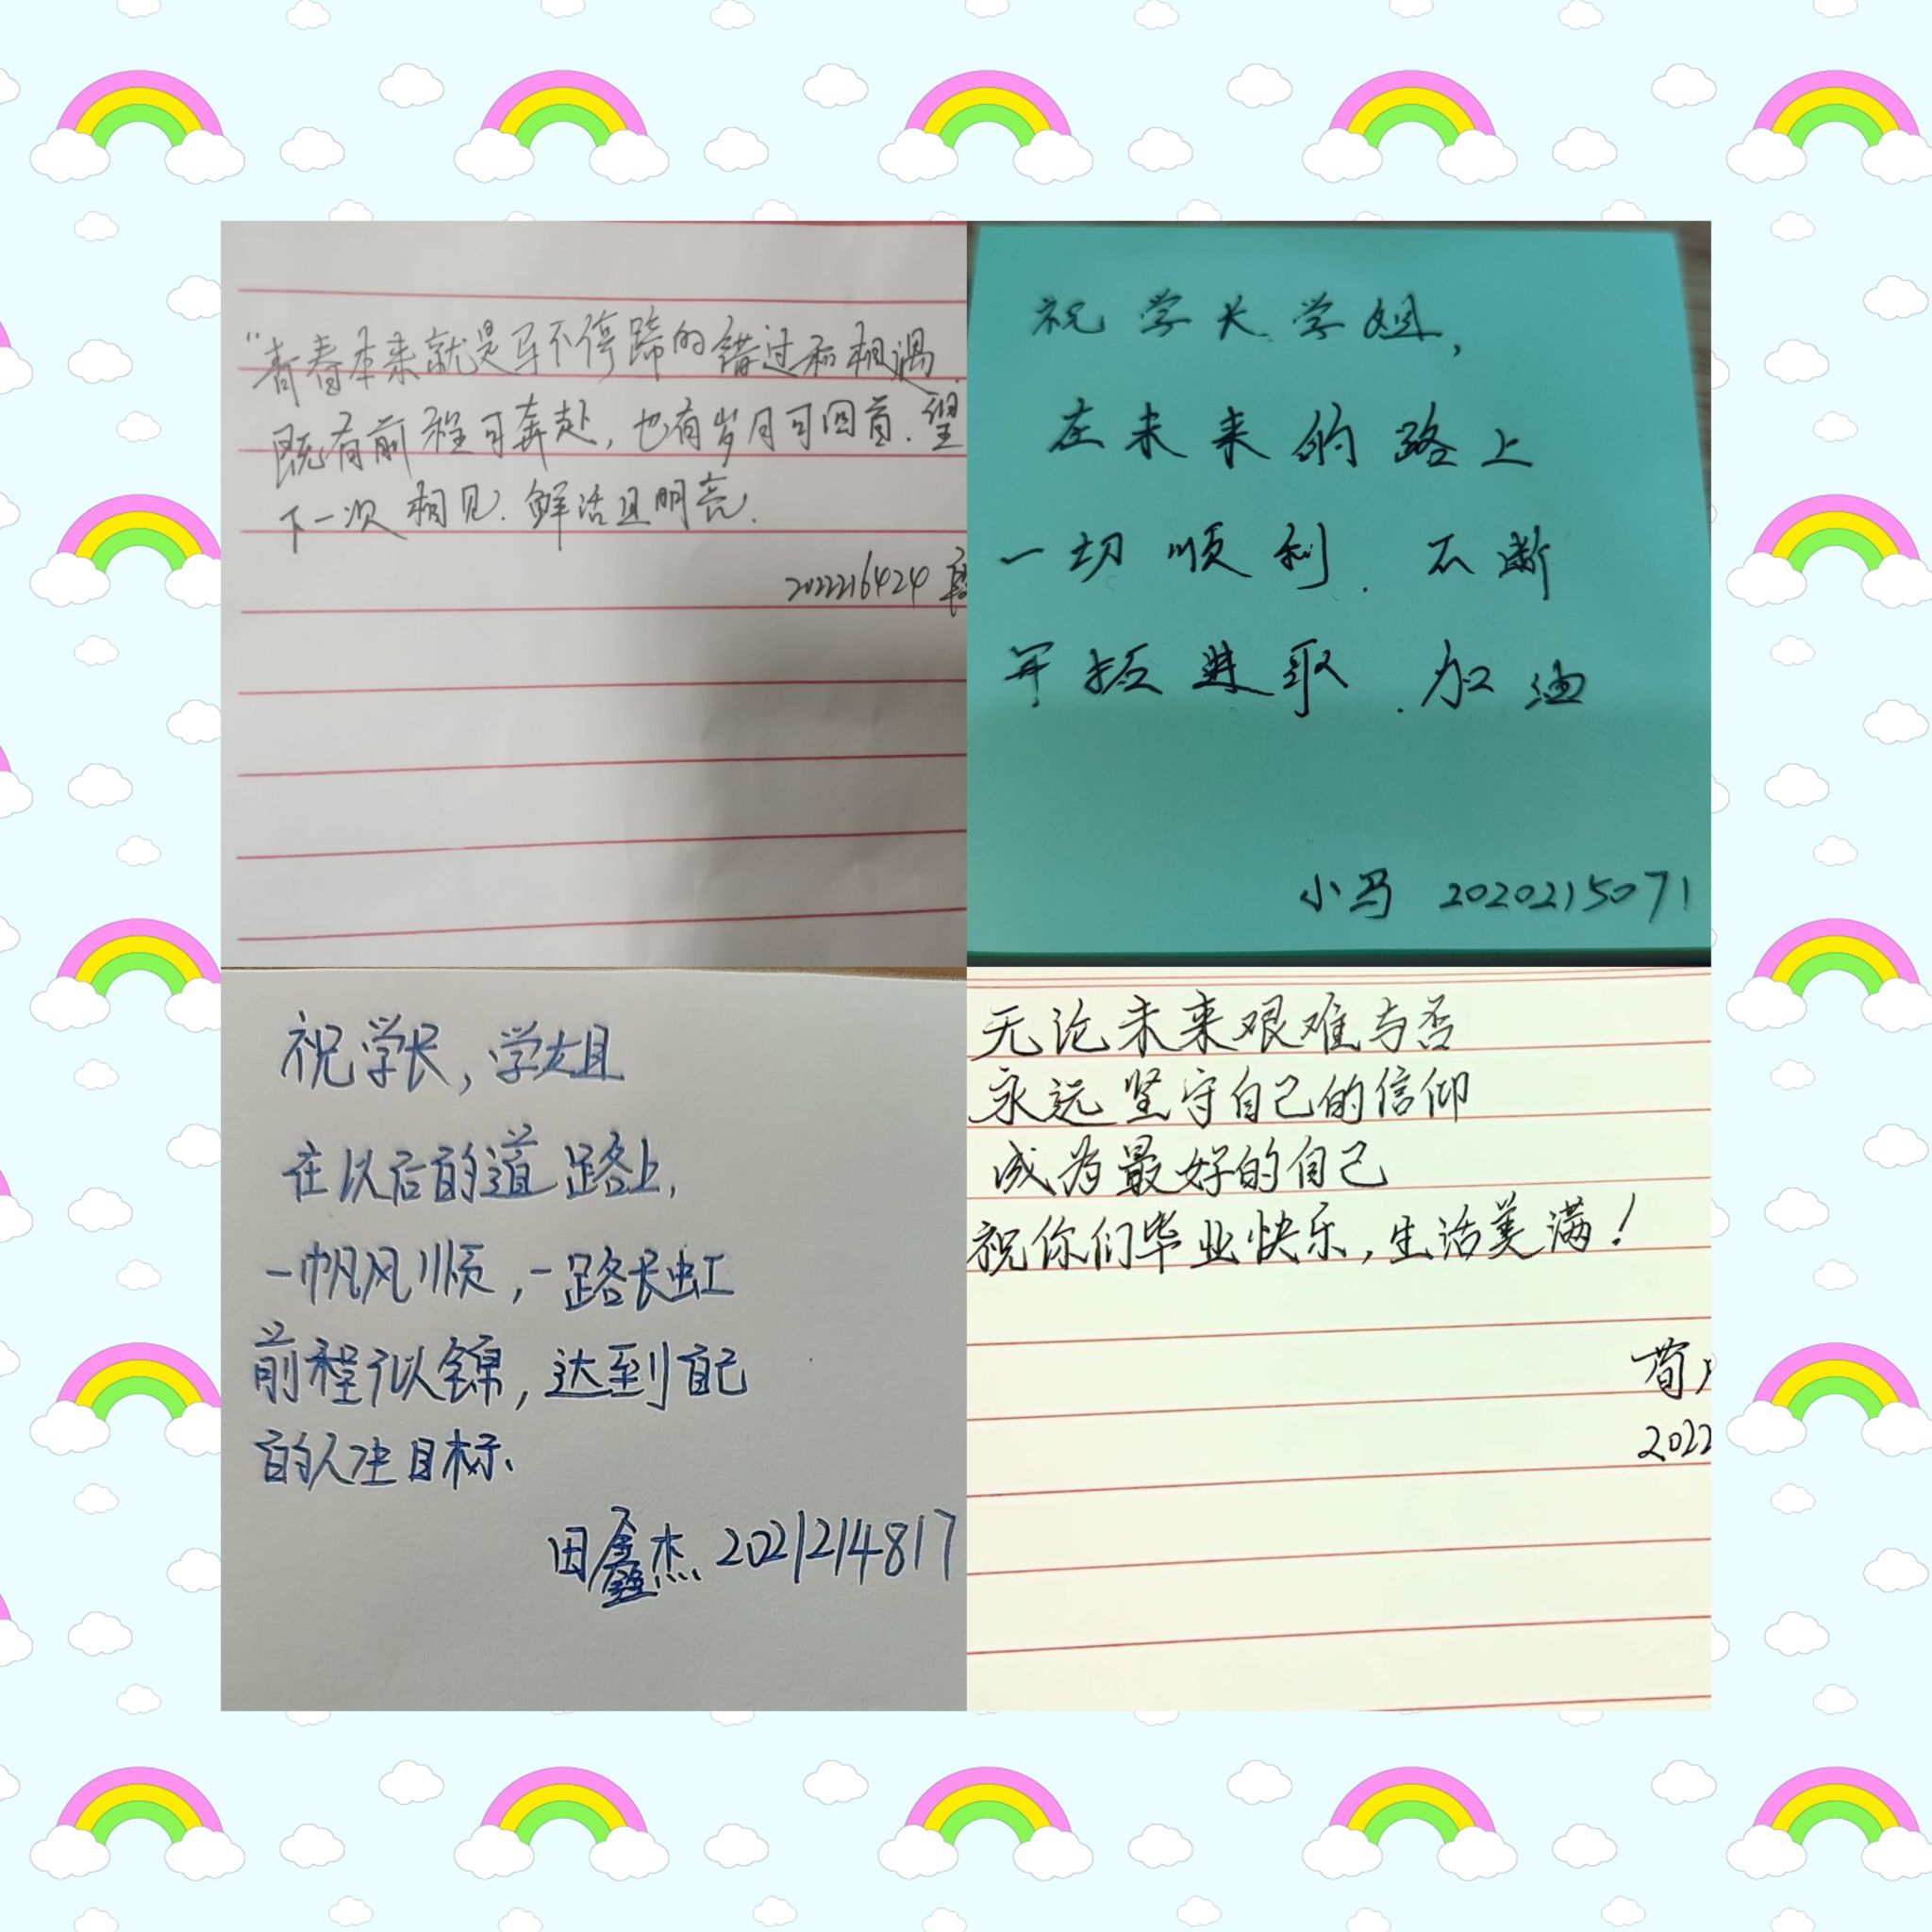 "青春本来就是马不停蹄的错过和相遇.
既有前程可奔赴,也有岁月可回首.望
下一次相见.鲜活且明亮.
2022216424
祝学长学姐,
在未来的路上
一切顺利.不断
开拓进取.加油
小马 2020215071
祝学长,学姐
在以后的道路上,
一帆风顺,一路长虹
前程似锦,达到自己
的人生目标、
田鑫杰 2021214817
无论未来艰难与否
永远坚守自己的信仰
成为最好的自己
祝你们毕业快乐,生活美满!
荀
2022